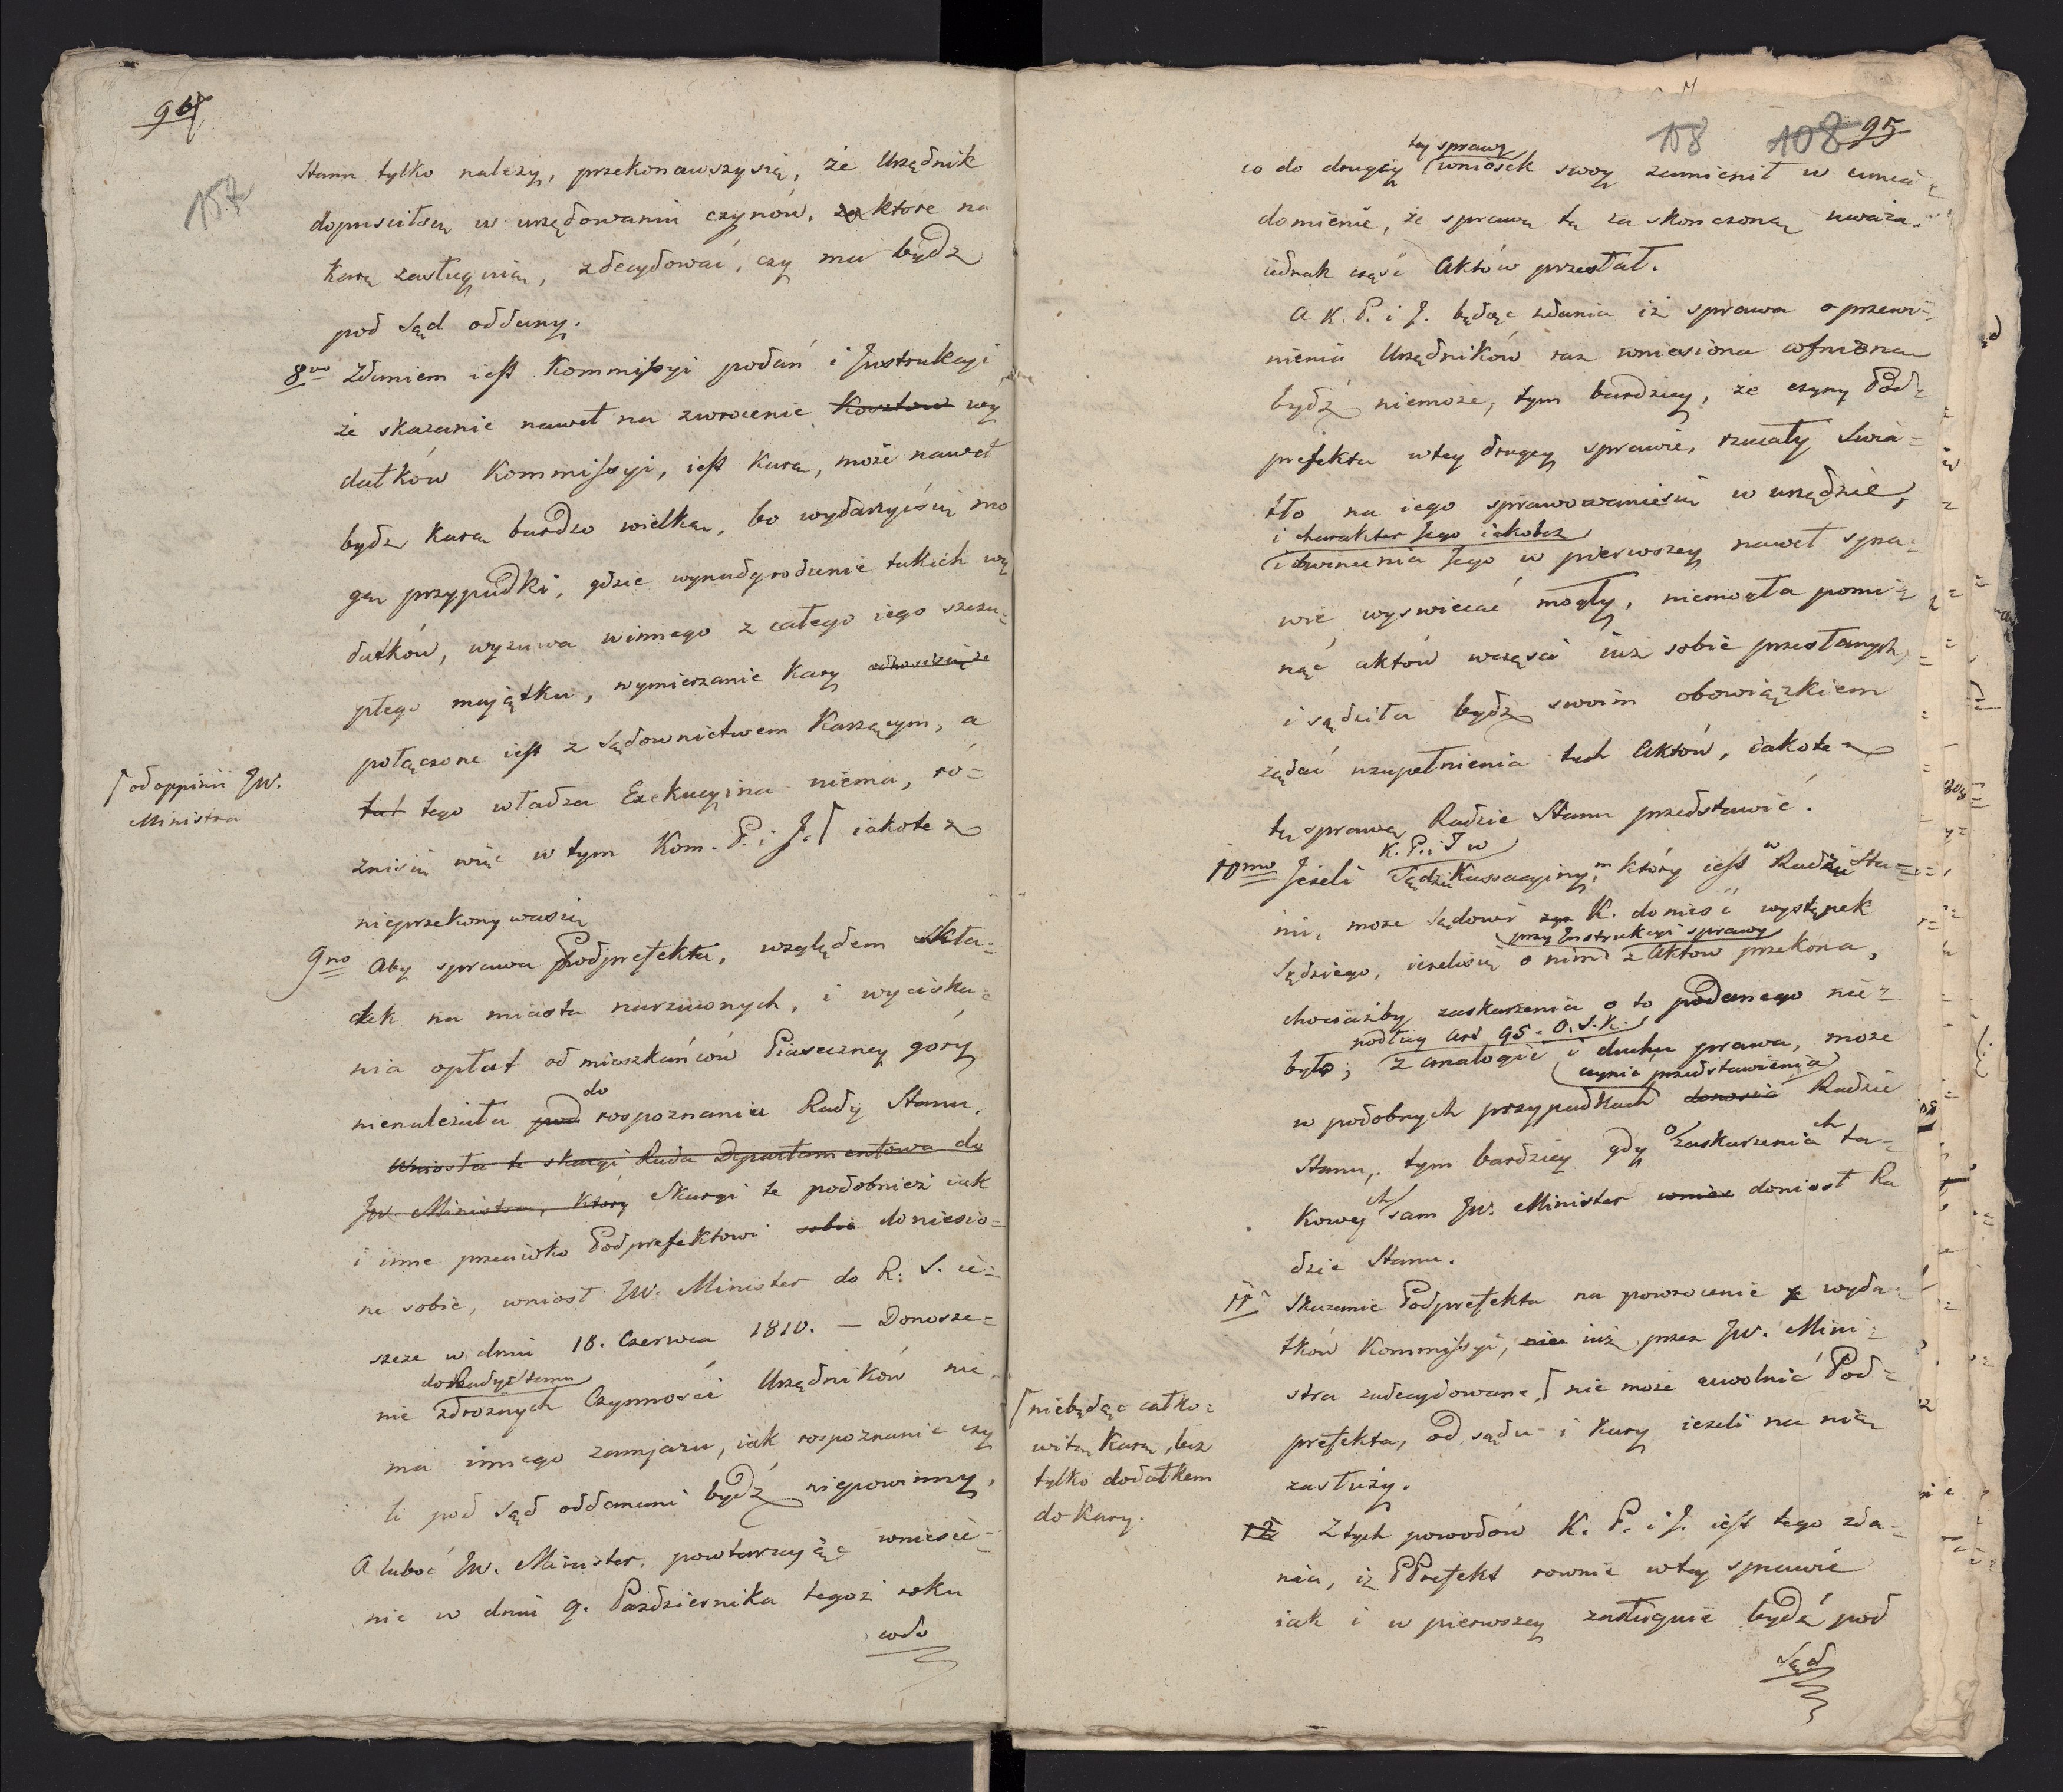 94
157
Stanu tylko należy, przekonawszysię, że Urzędnik
dopuściłsię w urzędowaniu czynów, za które na
karę zasługuią, zdecydować, czy ma bydź
pod Sąd oddany.
8vo Zdaniem iest Kommissyi podań i Instrukcyi
że skazanie nawet na zwrócenie Kosztow wy
datków Kommissyi, iest karą, może nawet
bydz karą bardzo wielką, bo wydarzyćsię mo
gą przypadki, gdzie wynadgrodzenie takich wy
datków, wyzuwa winnego z całego iego szczu¬
płego maiątku, wymierzanie kary
połączone iest z Sądownictwem Karzącym, a
tego władza Exekucyina niema, ró=
żnisię więc w tym Kom. P. i J. ⌈ iakotez
⌈ od oppinii JW.
Ministra
nieprzekonywasię
9no Aby sprawa Podprefekta, względem skła=
dek na miasta narzuconych, i wyciska=
nia opłat od mieszkańców Piaseczney gory
nienależała pod do rospoznania Rady Stanu.
Wniosła te skargi Rada Departamentowa do
JW. Ministra, który Skargi te podobnież iak
i inne przeciwko Podprefektowi sobie doniesio=
ne sobie, wniosł JW. Minister do R. S. ie=
szcze w dniu 18. Czerwca 1810. — Donosze=
do Rady Stanu
nie zdrożnych Czynności Urzędników nie
ma innego zamjaru, iak rospoznanie czy
li pod Sąd oddanemi bydź niepowinny.
A lubo JW. Minister, powtarzaiąc wniesie=
nie w dniu 9. Października tegoż roku
codo
158 108 95
tey sprawy
co do drugiey wniosek swoy zamienił w uwia=
domienie, że sprawę tę za skonczoną uważa.
iednak część Aktów przesłał.
A K. P. i J. będąc zdania iż sprawa o przewi=
nienia Urzędników raz wniesiona cofniona
bydź niemoże, tym bardziey, że czyny Pod=
prefekta wtey drugiey sprawie, rzucały Swia=
tło na iego sprawowaniesię w urzędzie,
i charakter Jego iakotez
i winienia Jego w pierwszey nawet spra=
wie wyswiecać mogły, niemogła pomi=
nąć aktów wczęsci iuż sobie przesłanych,
i sądziła bydź swoim obowiązkiem
żądać uzupełnienia tych Aktów, iakotez
tę sprawę Radzie Stanu przedstawić.
K. P. i J w
10mo Jezeli Sądzie Kassacyinym, który iest w Radzie Sta=
nu, może Sądowi K. donieść występek
przy Instrukcyi sprawy
Sędziego, ieżelisię o nim z Aktow przekona,
chociażby zaskarzenia o to podanego nie=
podług Art. 95. O. S. K.
było; z analogii i duchu prawa, może
czynić przedstawienia
w podobnych przypadkach donosić Radzie
Stanu, tym bardziey gdy o zaskarzenia ch ta=
kowey ch sam JW. Minister doniosł Ra
dzie Stanu.
11 Skazanie Podprefekta na powrocenie wyda=
tków Kommissyi, iuż przez JW. Mini=
stra zadecydowane, ⌈ nie może uwolnić Pod=
⌈ niebędąc całko=
witą Karą, lecz
tylko dodatkem
do Kary.
prefekta, od sądu i kary ieżeli na nią
zasłuży.
12 Z tych powodów K. P. i J. iest tego zda=
nia, iż PPrefekt rownie wtey sprawie
iak i w pierwszey zasługuie bydź pod
Sąd